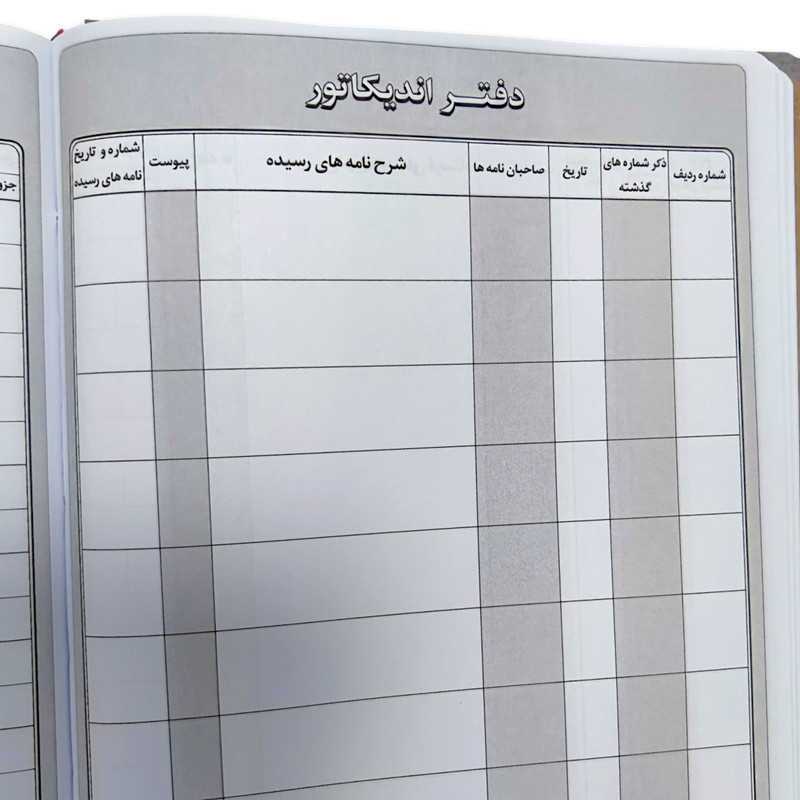 دفتر اندیکاتور
شماره ردیف
ذکر شماره های
گذشته
تاریخ
صاحبان نامه ها
شرح نامه های رسیده
پیوست
شماره و تاریخ
نامه های رسیده